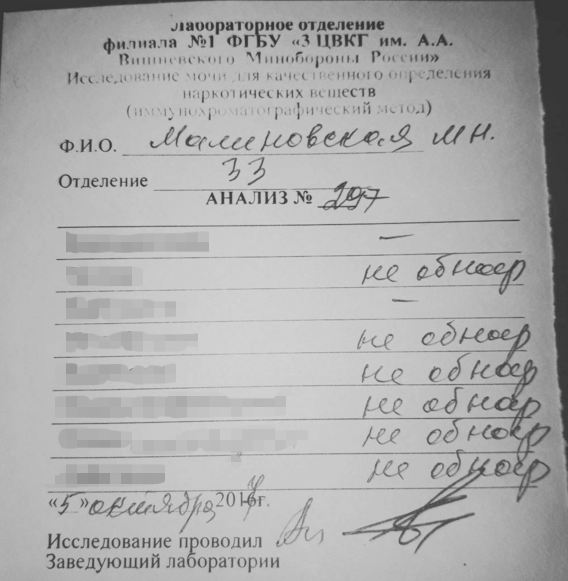 Лабораторное отделение
филиала №1 ФГБУ «3 ЦВКГ им. А.А.
Вишневского Минобороны России»
Исследование мочи для качественного определения
наркотических веществ
(иммунохроматографический метод)
Ф.И.О. Малиновская М.Н.
Отделение 33
АНАЛИЗ № 297
—
не обнар
—
не обнар
не обнар
не обнар
не обнар
не обнар
«5» октября 2017г.
Исследование проводил
Заведующий лаборатории